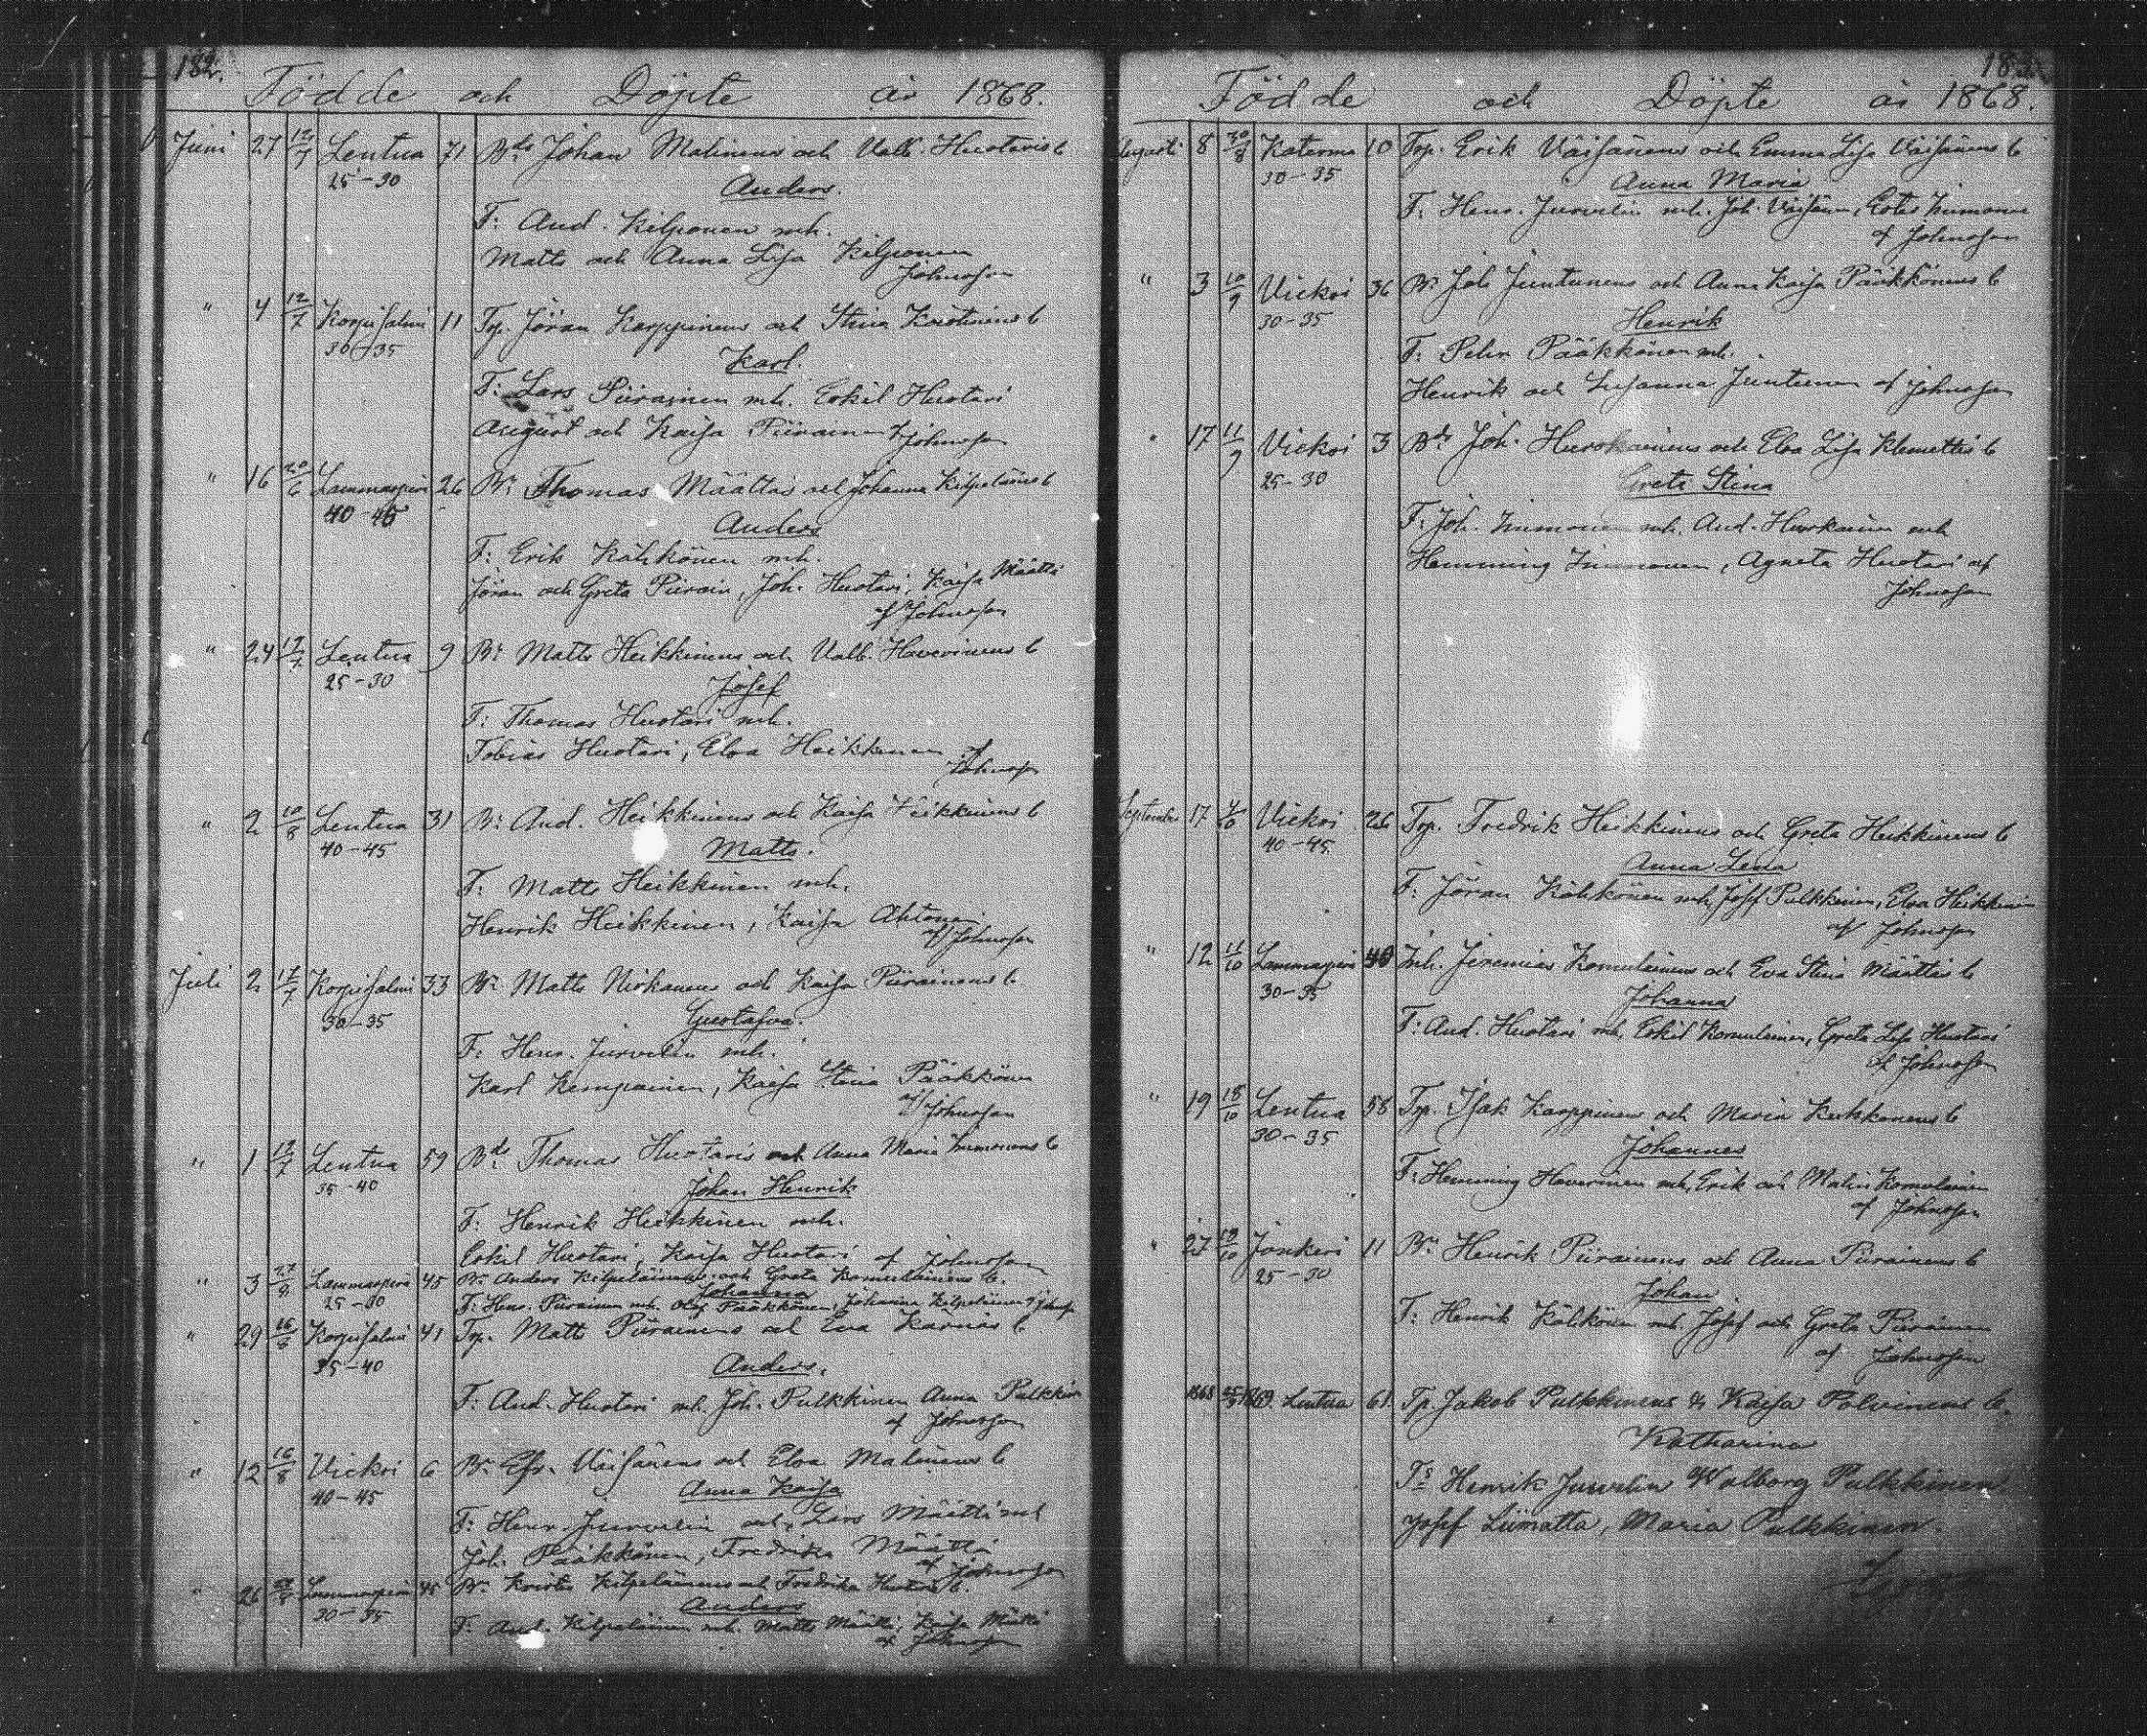 182.
Födde och Döpte år 1868.
Juni 27 12/7 Lentua 71 Bds Johan Malinens och Valb. Huotaris b
25-30 Anders.
F: And. Kilponen mh.
Matts och Anna Lisa Kilponen
Johnsson
" 4 12/7 Korpisalmi 11 Tp. Jöran Karppinens och Stina b
30-35 Karl.
F: Lars Piirainen mh. Eskil Huotari
August och Kaisa Piirainen af Johnsson
" 16 20/6 Lammasperä 26 Br. Thomas Määttäs och Johanna Kilpeläinens b
40-45 Anders
F: Erik Kähkönen mh.
Jöran och Greta Piirain, Joh. Huotari, Kaisa Määttä
af Johnsson
" 24 12/7 Lentua 9 Br Matts Heikkinens och Valb. Haverinens b
25-30 Josef
F: Thomas Huotari mh.
Tobias Huotari, Elsa Heikkinen af
Johnsson
" 2 10/8 Lentua 31 Br. And. Heikkinens och Kaisa Heikkinens b
40-45 Matts.
F: Matts Heikkinen mh.
Henrik Heikkinen, Kaisa Ahtonen
af Johnsson
Juli 2 12/7 Korpisalmi 33 Br. Matts Niskanens och Kaisa Piirainens b
30-35 Gustafva.
F: Henr. Jurvelin mh.
Karl Kemppainen, Kaisa Stina Pääkkönen
af Johnsson
" 1 12/7 Lentua 59 Bds Thomas Huotaris och Anna Maria Immonens b
35-40 Johan Henrik
F: Henrik Heikkinen mh.
Eskil Huotari, Kaisa Huotari af Johnsson
" 3 27/8 Lammasperä 45 Br. Anders Kilpeläinens och Greta Komulainens b.
25-30 Johanna
F: Henr. Piirainen mh. Olof Pääkkönen, Johanna Kilpeläinen af Johnss
" 29 16/8 Korpisalmi 41 Tp. Matts Piirainens och Eva Karnas b
35-40 Anders.
F: And. Huotari mh. Joh. Pulkkinen Anna Pulkkin
af Johnsson
" 12 16/8 Vieksi 6 Br. Väisänens och Elsa Malinens b
40-45 Anna Kaisa
F: Henr. Jurvelin och Lars Määttä mh
Joh. Pääkkönen, Fredrika Määttä
af Johnsson
" 26 Lammasperä 45 Br. Krister Kilpeläinens och Fredrika Huotaris b.
30-35 Anders
F: And. Kilpeläinen mh. Matts Määttä, Kaisa Määttä
af Johnsson
183.
Födde och Döpte år 1868.
Augusti 8 30/8 Katerma 10 Tp. Erik Väisänens och Emma Lisa Väisänens b
30-35 Anna Maria
F: Henr. Jurvelin mh. Joh. Väisänen, Ester Immonen
af Johnsson
" 3 10/9 Vieksi 36 Br Joh Juntunens och Anna Kaisa Pääkkönens b
30-35 Henrik
F: Pehr Pääkkönen mh.
Henrik och Susanna Juntunen af Johnsson
" 17 11/9 Vieksi 3 Bds Joh. Hurskainens och Elsa Lisa Klemettis b
25-30 Greta Stina
F: Joh. Immonen mh. And. Hurskainen och
Hemming Immonen, Agneta Huotari af
Johnsson
September 17 4/10 Vieksi 26 Tp. Fredrik Heikkinens och Greta Heikkinens b
40-45. Anna Lena
F: Jöran Kähkönen mh, Josef Pulkkinen, Elsa Heikkinen
af Johnsson
" 12 11/10 Lammasperä 40 Inh. Jeremias Komulainens och Eva Stina Määttäs b
30-35 Johanna
F: And. Huotari mh, Eskil Komulainen, Greta Lisa Huotari
af Johnsson
" 19 18/10 Lentua 58 Tp. Isak Karppinens och Maria Keskkonens b
30-35 Johannes
F: Hemming Haverinen mh, Erik och Malin Komulainen
af Johnsson
" 27 19/10 Jonkeri 11 Br. Henrik Piirainens och Anna Piirainens b
25-30 Johan
F: Henrik Kähkönen mh, Josef och Greta Piirainen
af Johnsson
1868 1869. Lentua 61. Tp. Jakob Pulkkinens & Kaisa Polvinens b.
Katharina
F: Henrik Jurvelin Walborg Pulkkinen
Josef Liimatta, Maria Pulkkinen.